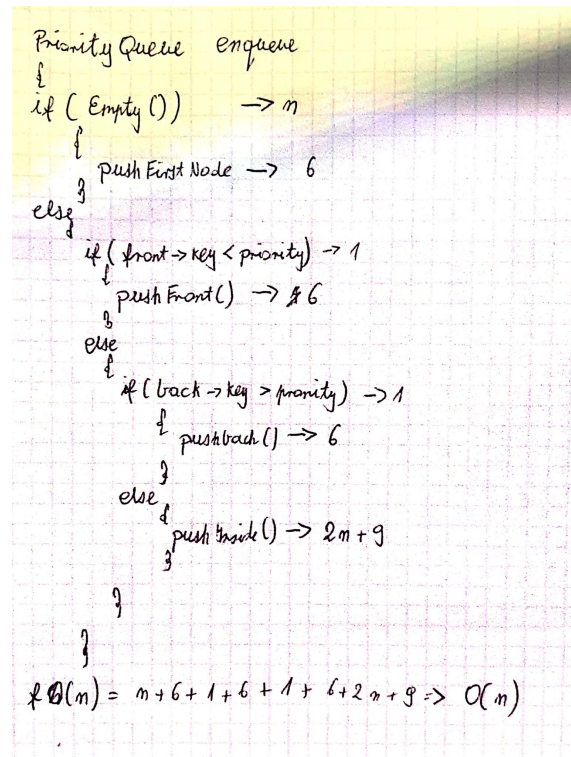 Priority Queue enqueue
{
if ( Empty ()) → n
{
push First Node → 6
}
else
{
if ( front → key < priority) → 1
{
push Front () → 6
}
else
{
if ( back → key > priority) → 1
{
pushback () → 6
}
else
{
push Inside () → 2n + 9
}
}
}
(n) = n + 6 + 1 + 6 + 1 + 6 + 2n + 9 => O(n)